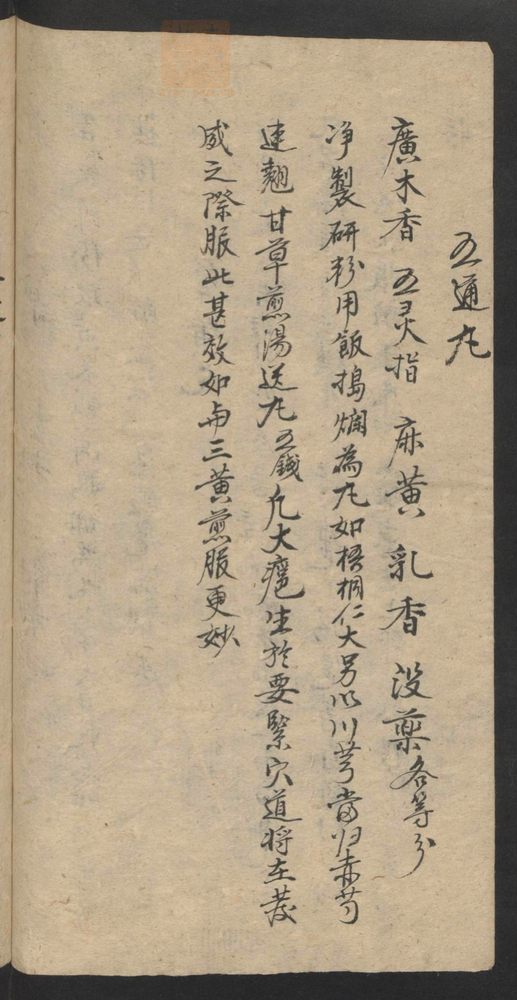 五通丸
廣木香 五灵指 麻黄 乳香 没藥各等分
净製研粉用飯搗爛為丸如梧桐仁大另以川芎當归赤芍
連翹甘草煎湯送丸五錢凢大瘡生於要緊穴道将在發
威之際服此甚效如与三黄煎服更妙